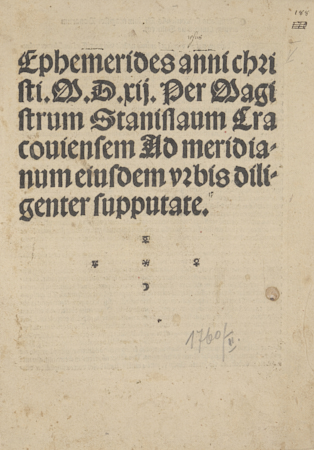 Ephemerides anni chri
sti. M. D. xij. Per Magi
strum Stanislaum Cra
couiensem Ad meridia-
num eiusdem vrbis dili-
genter supputate.
1760/II.